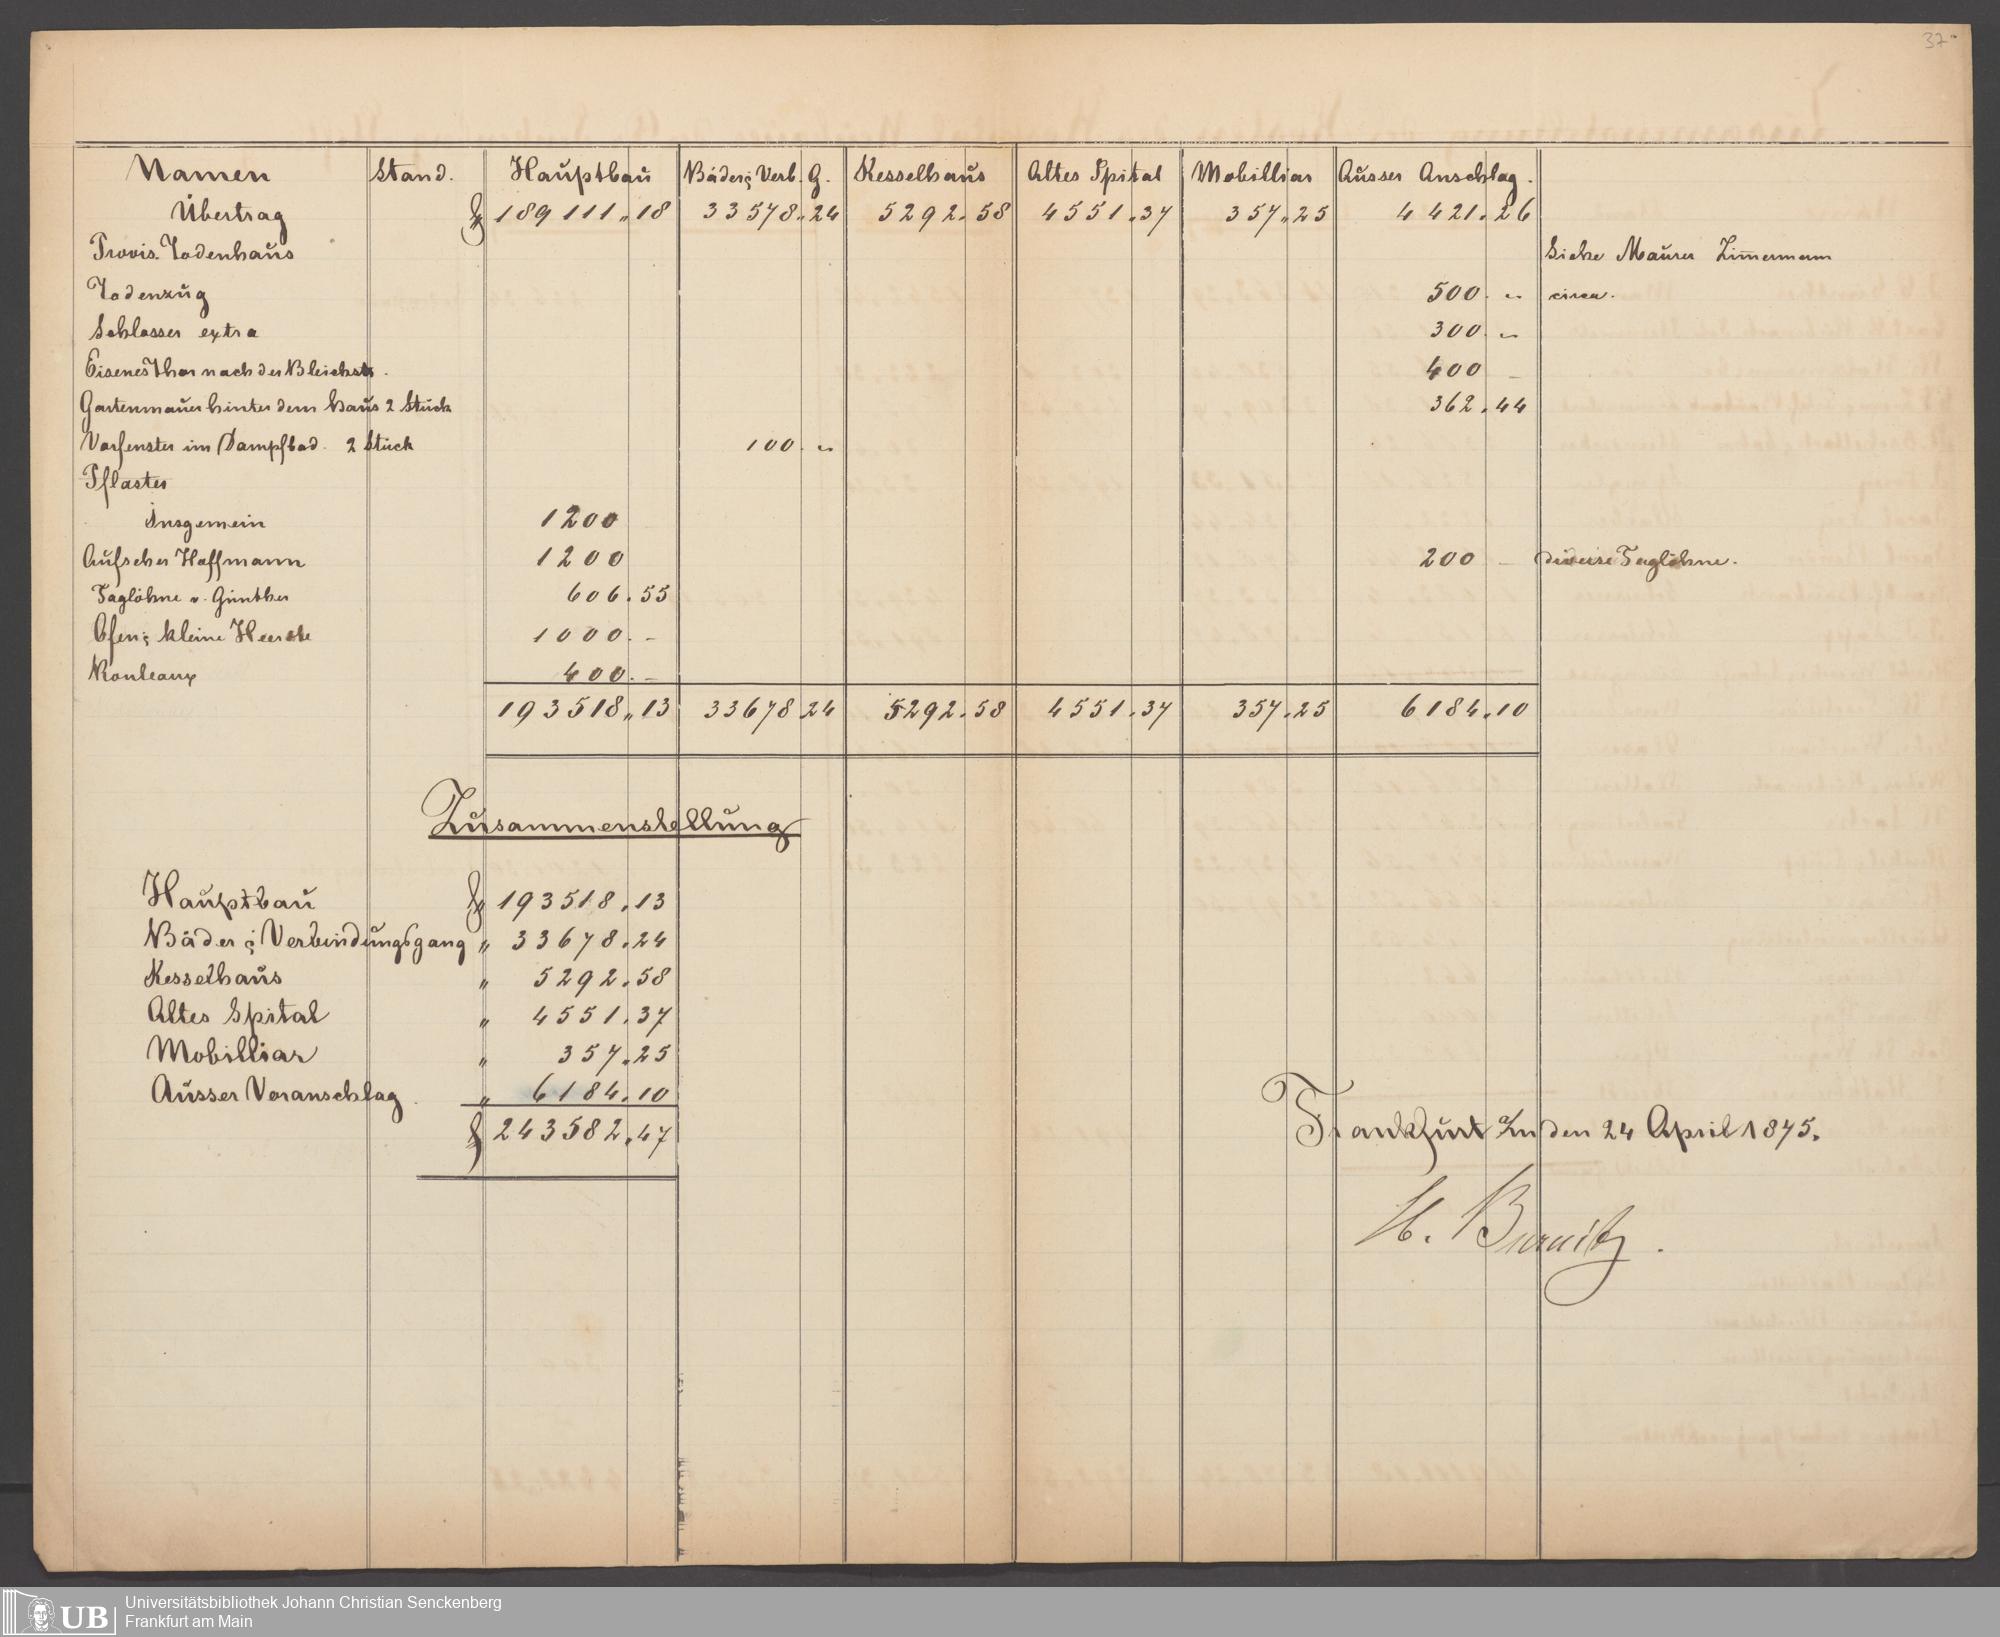 37
Namen Stand. Hauptbau Bäder & Verb. G. Kesselhaus Altes Spital Mobilliar Ausser Anschlag.
Übertrag 189111.18 33578.24 5292.58 4551.37 357.25 4421.26
Provis. Todenhaus Siehe Maurer Zimmermann
Todenzug 500.– circa.
Schlosser extra 300.–
Eisenes Thor nach der Bleichstr. 400 –
Gartenmauer hinter dem Haus 2 Stück 362.44
Vorfenster im Dampfbad. 2 Stück 100.–
Pflaster
Insgemein 1200
Aufseher Hoffmann 1200 200 – diverse Taglöhne.
Taglöhne v. Günther 606.55
Öfen & kleine Heerde 1000.–
Rouleaux 400.–
193518.13 33678.24 5292.58 4551.37 357.25 6184.10
Zusammenstellung
Hauptbau 193518.13
Bäder & Verbindungsgang " 33678.24
Kesselhaus " 5292.58
Altes Spital " 4551.37
Mobilliar " 357.25
Ausser Voranschlag. " 6184.10
243582.47
Frankfurt den 24 April 1875.
H. Burnitz.
UB
Universitätsbibliothek Johann Christian Senckenberg
Frankfurt am Main